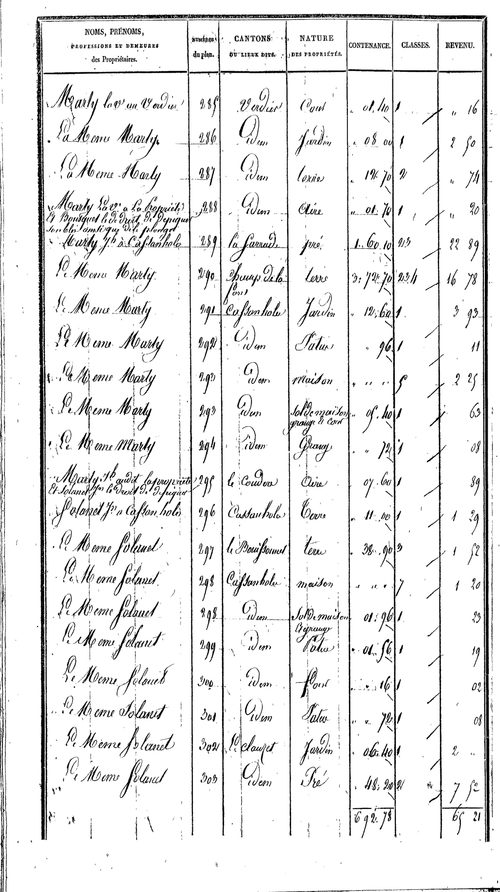 NOMS, PRÉNOMS, PROFESSIONS ET DEMEURES des Propriétaires. NUMÉROS du plan. CANTONS OU LIEUX DITS. NATURE DES PROPRIÉTÉS. CONTENANCE. CLASSES. REVENU.
Marty la ve au Verdier 285 Verdier Cour " 01. 40 1 " 16
La Meme Marty. 286 idem Jardin " 08. 00 1 2 50
La Meme Marty 287 idem terre " 12. 70 2 " 74
Marty La ve a La propriété 288 idem Aire " 01. 70 1 " 20
Et Bousquet le droit de depiquer
Marty Jh à Cassanhole 289 pré 1. 60. 10 2 3 22 89
Le Meme Marty 290 champ de la font terre 3. 72. 70 2 3 4 16 78
Le Meme Marty 291 Cassanhole Jardin " 12. 60 1 3 93
Le Meme Marty 292 idem Patus " 96 1 11
Le Meme Marty 293 idem maison " " " 5 2 25
Le Meme Marty 293 idem Sol de maison grange et cour " 05. 40 1 63
Le Meme Marty 294 idem " 72 1 08
Marty Jh audit la propriété 295 le Coudou Aire 07. 60 1 89
Et Solanet Jh le droit de depiquer
Solanet Jh a Cassanhole 296 Cassanhole Terre " 11. 00 1 1 29
Le Meme Solanet 297 le Bouissonnet terre 38. 90 3 1 52
Le Meme Solanet 298 Cassanhole maison " " " 7 1 20
Le Meme Solanet 298 idem Sol de maison et grange " 01. 96 1 23
Le Meme Solanet 299 idem Patus " 01. 56 1 19
Le Meme Solanet 300 idem four " " 16 1 02
Le Meme Solanet 301 idem Patus " " 72 1 08
Le Meme Solanet 302 Le clauzet Jardin " 06. 40 1 2 "
Le Meme Solanet 303 idem Pré " 48. 20 2 7 52
6 92. 78 65 21